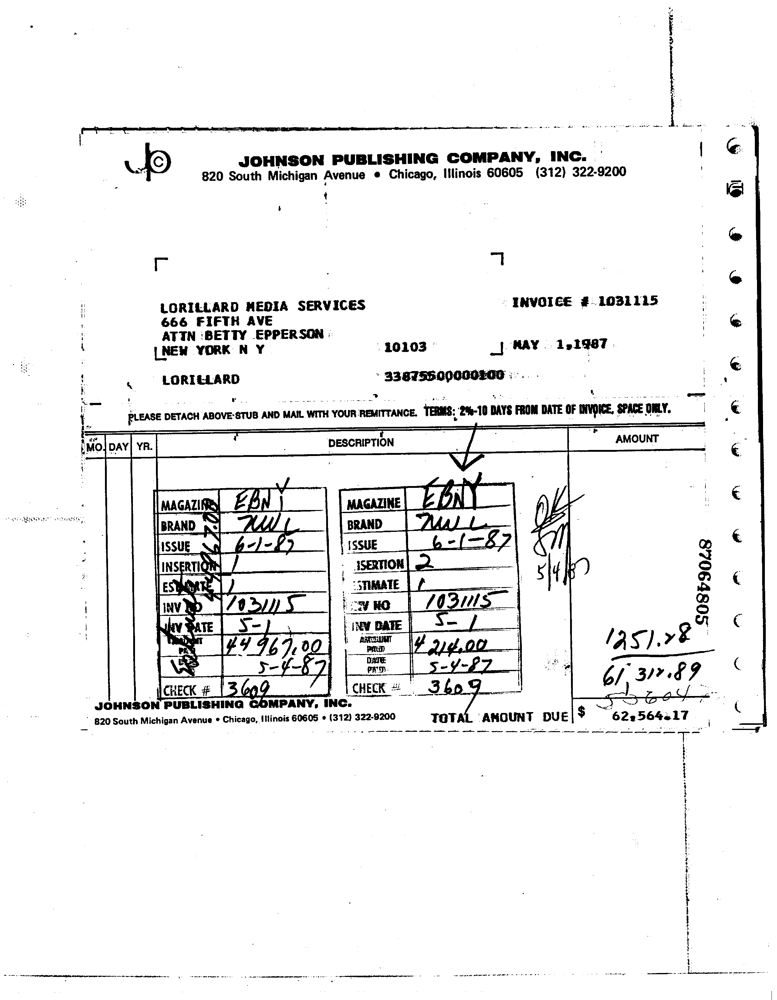 JPC
JOHNSON PUBLISHING COMPANY, INC.
820 South Michigan Avenue • Chicago, Illinois 60605 (312) 322-9200
LORILLARD MEDIA SERVICES INVOICE # 1031115
666 FIFTH AVE
ATTN BETTY EPPERSON
NEW YORK N Y 10103 MAY 1,1987
LORILLARD 33875500000100
PLEASE DETACH ABOVE STUB AND MAIL WITH YOUR REMITTANCE. TERMS: 2%-10 DAYS FROM DATE OF INVOICE, SPACE ONLY.
MO. DAY YR. DESCRIPTION AMOUNT
MAGAZINE EBNY
BRAND NWL
ISSUE 6-1-87
INSERTION 1
ESTIMATE 1
INV NO 1031115
INV DATE 5-1
AMOUNT PAID 44967.00
5-4-87
CHECK # 3609
MAGAZINE EBNY
BRAND NWL
ISSUE 6-1-87
INSERTION 2
ESTIMATE 1
INV NO 1031115
INV DATE 5-1
AMOUNT PAID 4214.00
DATE PAID 5-4-87
CHECK # 3609
OK
5/4/87
87064805
1251.28
61,312.89
JOHNSON PUBLISHING COMPANY, INC.
820 South Michigan Avenue • Chicago, Illinois 60605 • (312) 322-9200
TOTAL AMOUNT DUE $ 62,564.17